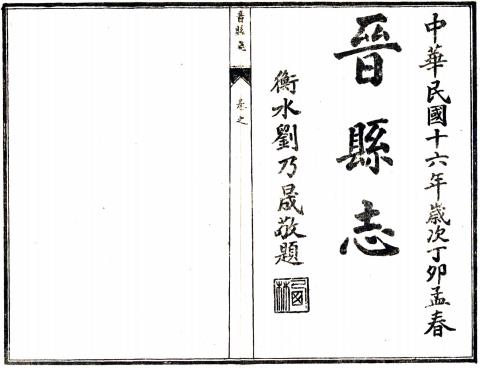 中華民國十六年歲次丁卯孟春
晉縣志
衡水劉乃晟敬題
晉縣志
卷之